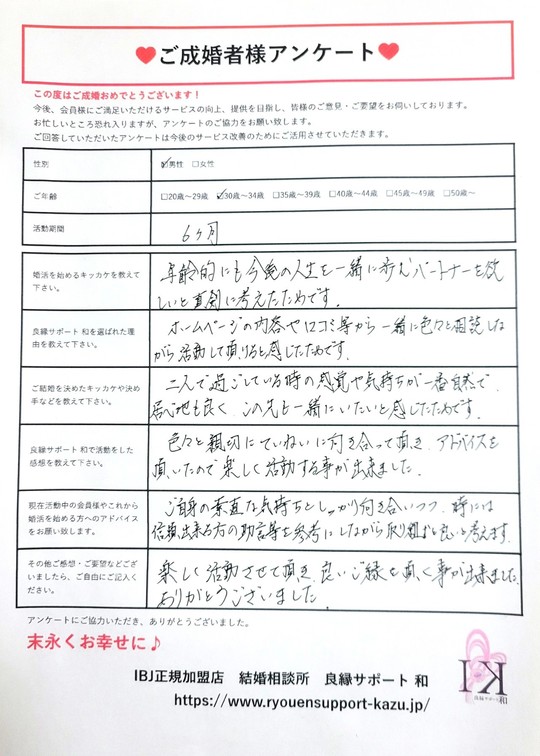 ♥ご成婚者様アンケート♥
この度はご成婚おめでとうございます！
今後、会員様にご満足いただけるサービスの向上、提供を目指し、皆様のご意見・ご要望をお伺いしております。
お忙しいところ恐れ入りますが、アンケートのご協力をお願い致します。
ご回答していただいたアンケートは今後のサービス改善のためにご活用させていただきます。
性別
☑男性 □女性
ご年齢
□20歳～29歳 ☑30歳～34歳 □35歳～39歳 □40歳～44歳 □45歳～49歳 □50歳～
活動期間
6ヶ月
婚活を始めるキッカケを教えて
下さい。
年齢的にも今後の人生を一緒に歩むパートナーを欲
しいと真剣に考えたためです。
良縁サポート 和を選ばれた理
由を教えて下さい。
ホームページの内容や口コミ等から一緒に色々と相談しな
がら活動して頂けると感じたためです。
ご結婚を決めたキッカケや決め
手などを教えて下さい。
二人で過ごしている時の感覚や気持ちが一番自然で、
居心地も良く、この先も一緒にいたいと感じたためです。
良縁サポート 和で活動をした
感想を教えて下さい。
色々と親切にていねいに向き合って頂き、アドバイスを
頂いたので楽しく活動する事が出来ました。
現在活動中の会員様やこれから
婚活を始める方へのアドバイス
をお願い致します。
ご自身の素直な気持ちとしっかり向き合いつつ、時には
信頼出来る方の助言等を参考にしながら取り組むと良いと考えます。
その他ご感想・ご要望などござ
いましたら、ご自由にご記入く
ださい。
楽しく活動させて頂き、良いご縁を頂く事が出来ました。
ありがとうございました。
アンケートにご協力いただき、ありがとうございました。
末永くお幸せに♪
KI
良縁サポート 和
IBJ正規加盟店 結婚相談所 良縁サポート 和
https://www.ryouensupport-kazu.jp/